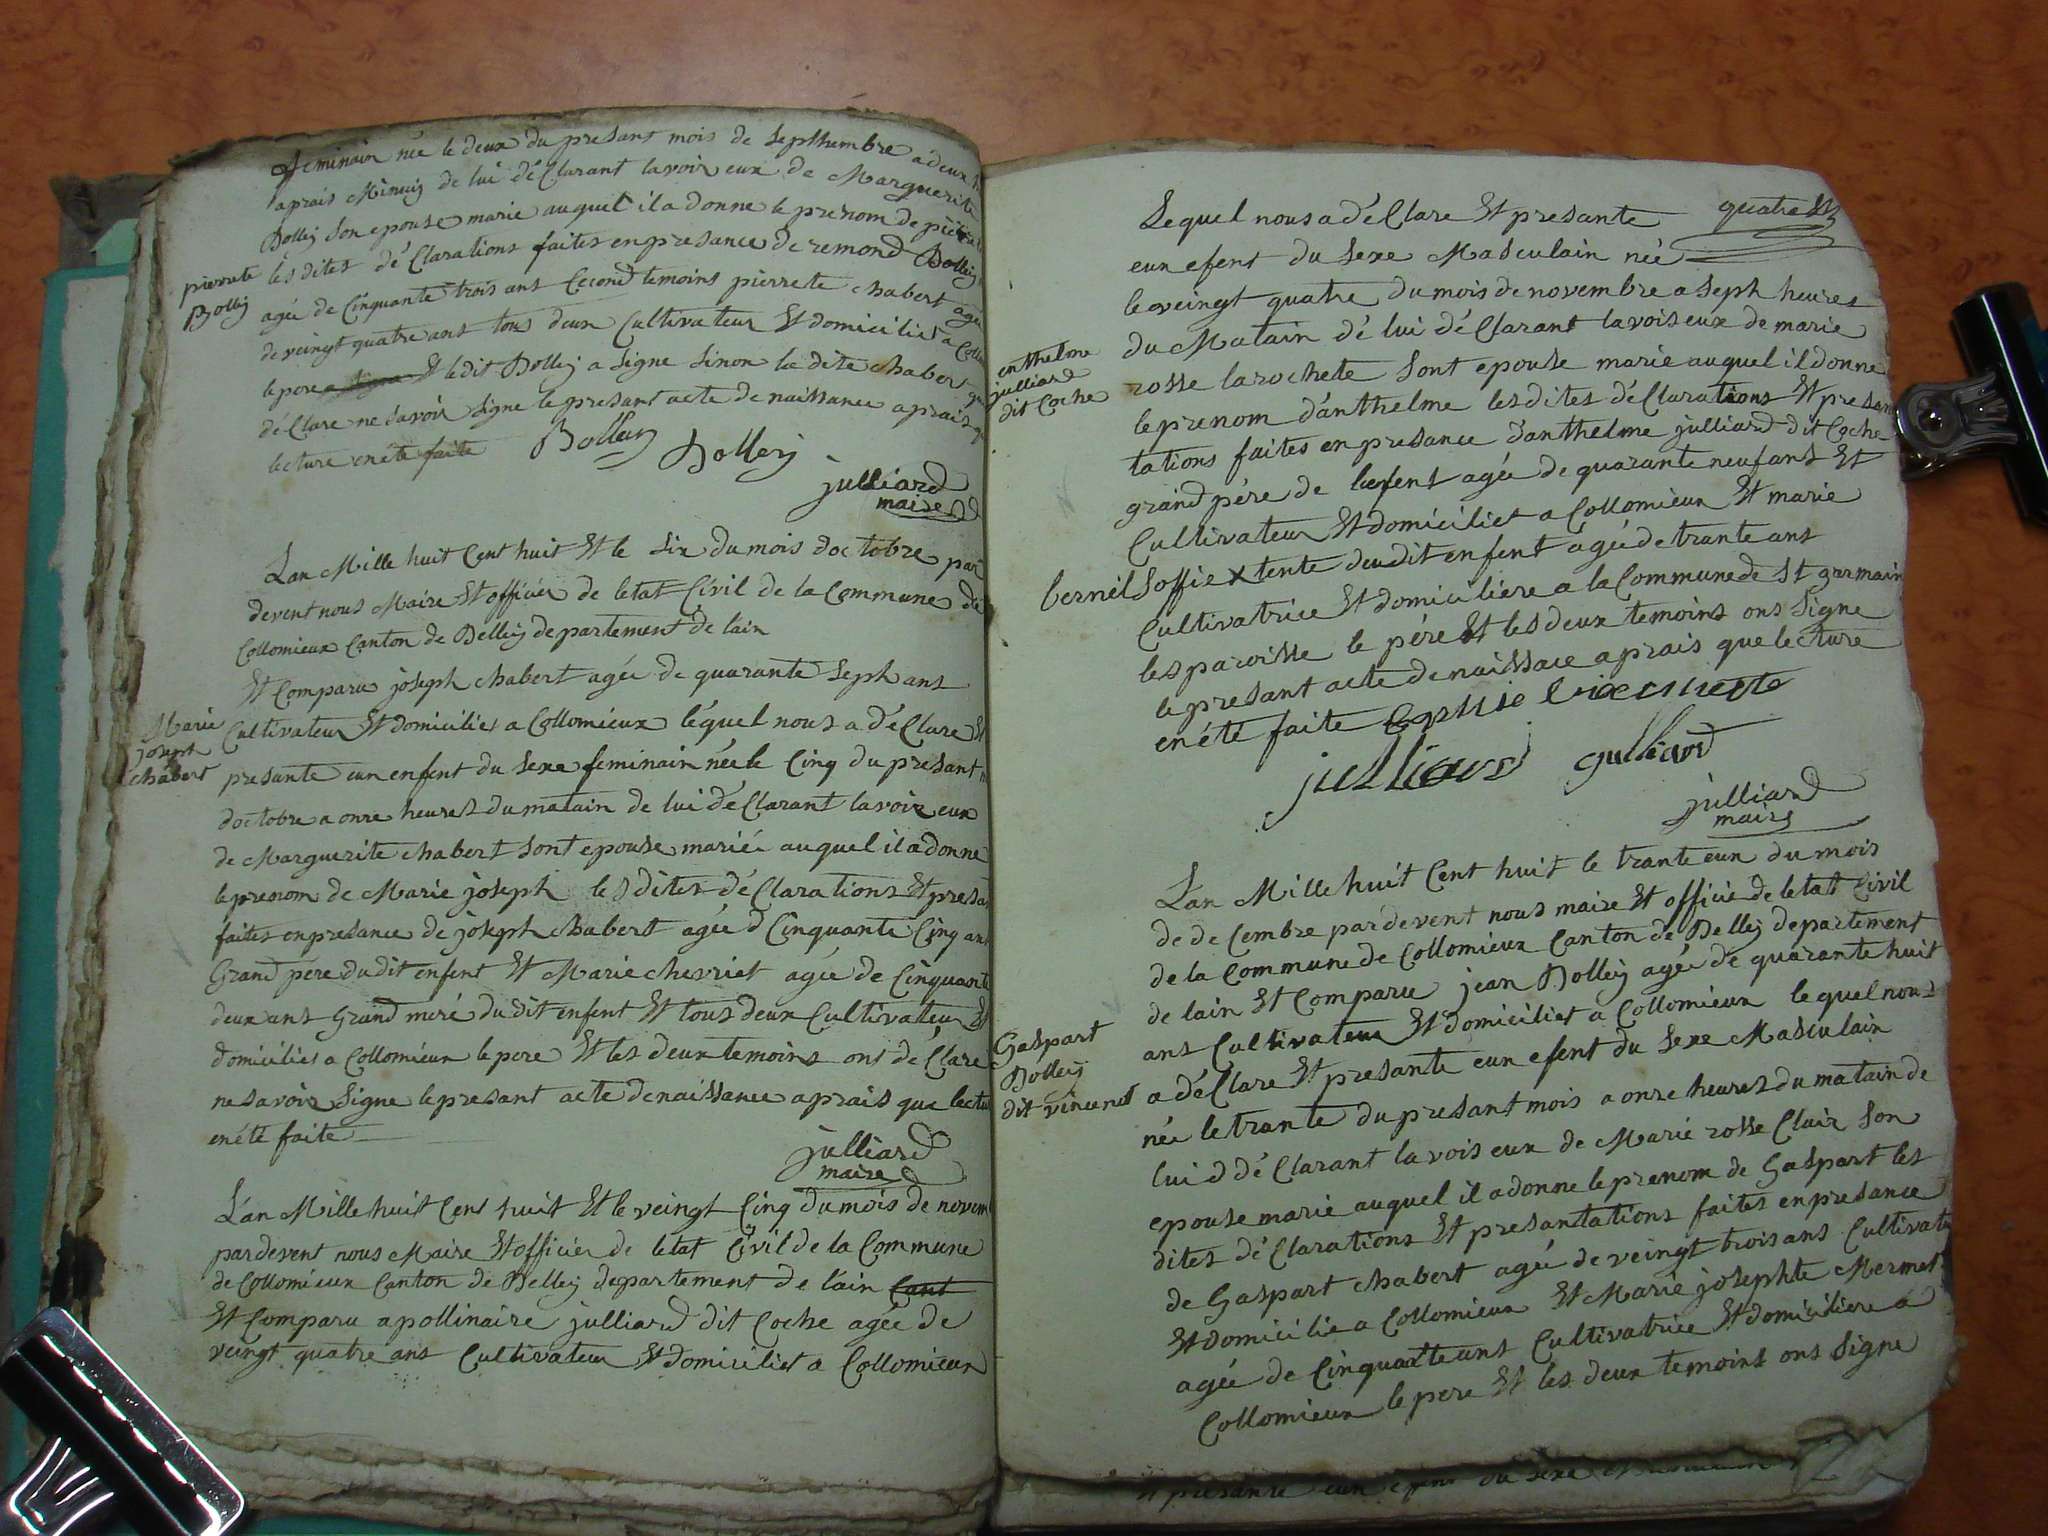 feminain née le deux du presant mois de Septhembre a deux
aprais Minuis de lui déClarant lavoir eux de Marguerite
Bolley Son epouse marie auquel il a donne le prenom de
pierrete
Bolley
les dites déClarations faites en presance de remond Bolley
agée de Cinquante trois ans Second temoins pierrete Chabert agée
de veingt quatre ans tous deux Cultivateur Et domiciliés a
le pere a signe Et ledit Bolley a Signe Sinon la dite Chabert
déClare ne Savoir Signe le presant acte de naissance aprais
lecture enété faite
Bolley Bolley
julliard
maire
Lan Mille huit Cent huit Et le Six du mois doctobre par
devent nous Maire Et officier de letat Civil de la Commune de
Collomieux Canton de Belley departement de lain
Et Comparu joseph Chabert agée de quarante Seph ans
Marie
joseph
Chabert
Cultivateur Et domicilies a Collomieux léquel nous a déClare Et
presante eun enfent du Sexe feminain née le Cinq du presant
doctobre a onze heures du matain de lui déClarant lavoir eux
de Marguerite Chabert Sont epouse mariée auquel il a donne
le prenom de Marie joseph les dites déClarations Et presa
faites en presance de joseph Chabert agée d Cinquante Cinq ans
Grand pere du dit enfent Et Marie Chevriet agée de Cinquante
deux ans Grand meré du dit enfent Et tous deux Cultivateur Et
domicilies a Collomieux le pere Et les deux temoins ons déClare
ne Savoir Signe le presant acte de naissance aprais que lectu
enété faite
julliard
maire
L'an Mille huit Cent huit Et le veingt Cinq du mois de novem
pardevent nous Maire Et officier de letat Civil de la Commune
de Collomieux Canton de Belley departement de l'ain Cant
Et Comparu apollinaire julliard dit Coche agée de
veingt quatre ans Cultivateur Et domicilies a Collomieux
quatre
Lequel nous a déClare Et presante
eun efent du Sexe Masculain née
le veingt quatre du mois de novembre a Seph heures
du Matain dé lui déClarant lavois eux de marie
enthelme
julliard
dit Coche
rosse larochete Sont epouse marie auquel il donne
le prenom d'anthelme les dites déClarations Et presen
tations faites en presance d'anthelme julliard dit Coche
grand pére de lefent agée de quarante neuf ans Et
Cultivateur Et domicilies a Collomieux Et marie
Soffie X tente deudit enfent agée de trante ans
Cultivatrice Et domiciliere a la Commune de St germain
les paroisse le pére Et les deux temoins ons Signe
le presant acte de naissace aprais que lecture
enété faite
julliard julliard
julliard
maire
L'an Mille huit Cent huit le trante eun du mois
de deCembre pardevent nous maire Et officié de letat Civil
de la Commune de Collomieux Canton de Belley departement
de lain Et Comparu jean Bolley agée de quarante huit
ans Cultivateur Et domicilies a Collomieux lequel nous
Gaspart
Bolley
dit vincent
a déClare Et presante eun efent du Sexe Masculain
née le trante du presant mois a onze heures du matain de
lui d déClarant lavois eux de Marie rosse Clair Son
epouse marie auquel il a donne le prenom de Gaspart les
dites déClarations Et presantations faites en presance
de Gaspart Chabert agée de veingt trois ans Cultivate
Et domicilie a Collomieux Et Marie josephte Mermet
agée de Cinquante ans Cultivatrice Et domiciliere a
Collomieux le pere Et les deux temoins ons Signe
Et presante eun efent du Sexe